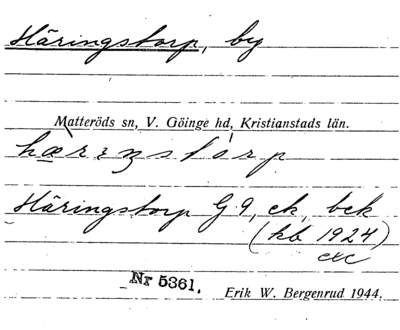 Häringstorp, by
Matteröds sn, V. Göinge hd, Kristianstads län.
Häringstorp G 9, ek, bek
(kb 1924)
etc
Nr 5361.
Erik W. Bergenrud 1944.